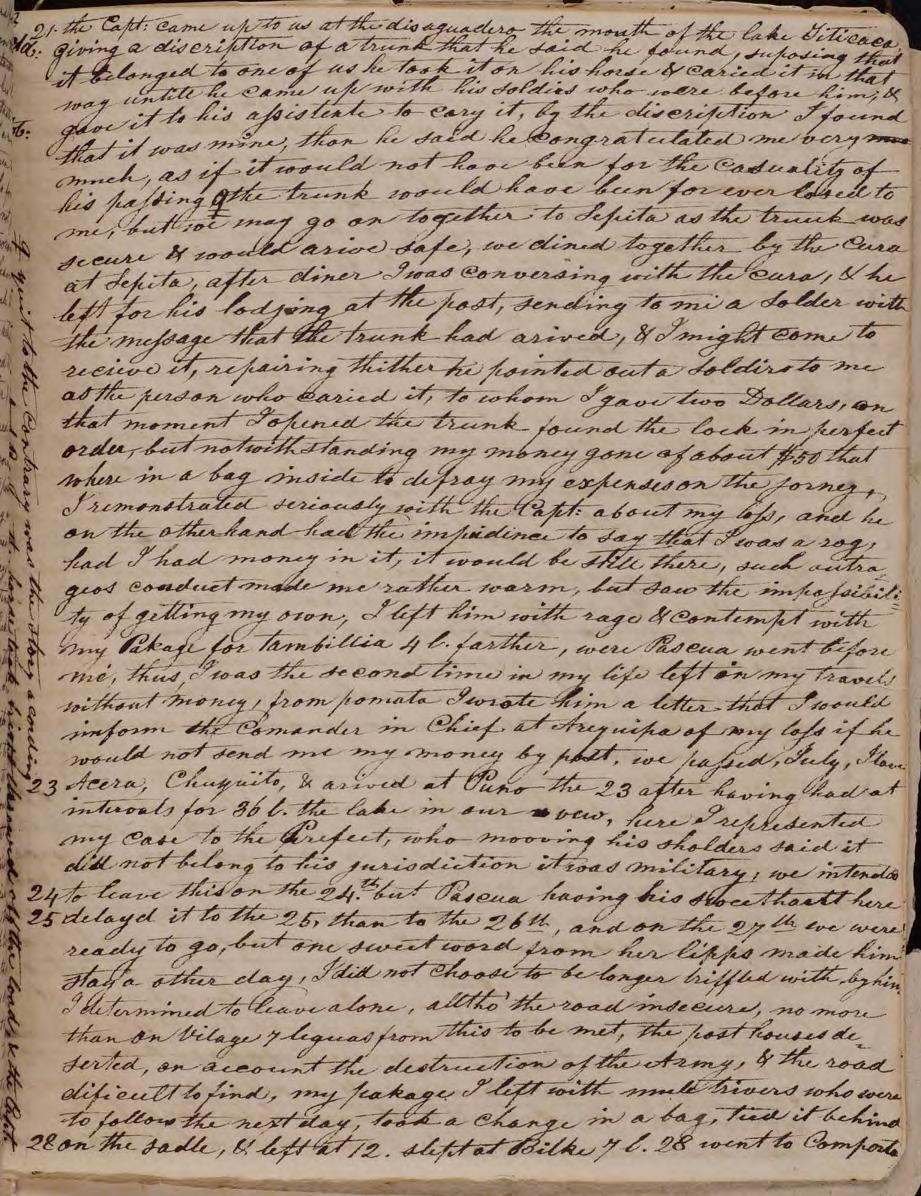 21. the Capt: came up to us at the disaguadero the mouth of the lake Titicaca,
giving a discription of a trunk that he said he found, suposing that
it belonged to one of us he took it on his horse & caried it in that
way untile he came up with his soldiers who were before him, &
gave it to his assistente to cary it, by the discription I found
that it was mine, than he said he congratulated me very
much, as if it would not have been for the casuality of
his passing the trunk would have been for ever losed to
me, but we may go on together to Sepita as the trunk was
secure & would arive safe, we dined together by the Cura
at Sepita, after diner I was conversing with the cura, & he
left for his lodjing at the post, sending to mi a Solder with
the message that the trunk had arived, & I might come to
recieve it, repairing thither he pointed out a Soldiers to me
as the person who caried it, to whom I gave two Dollars, on
that moment I opened the trunk found the lock in perfect
order, but notwithstanding my money gone of about $50 that
where in a bag inside to defray my expenses on the jorney,
I remonstrated seriously with the Capt: about my loss, and he
on the otherhand had the impudince to say that I was a rog,
had I had money in it, it would be still there, such outra
geos conduct made me rather warm, but saw the impossibili=
ty of getting my own, I left him with rage & contempt with
my Pakage for Tambillia 4 l. farther, were Pascua went before
me, thus I was the second time in my life left on my travels
without money, from pomata I wrote him a letter that I would
inform the Comander in Chief at Arequipa of my loss if he
would not send me my money by post, we passed, July, Ilave
23 Acera, Chuquito, & arived at Puno the 23 after having had at
intervals for 36 l. the lake in our vew, here I represented
my case to the Prefect, who mooving his sholders said it
did not belong to his jurisdiction it was military; we intended
24 to leave this on the 24th. but Pascua having his sweethart here
25 delayd it to the 25, than to the 26th, and on the 27th we were
ready to go, but one sweet word from her lipps made him
stay a other day, I did not choose to be longer triffled with, by him,
I determined to leave alone, alltho' the road insecure, no more
than on Vilage 7 leguas from this to be met, the post houses de=
serted, on account the destruction of the Army, & the road
dificult to find, my pakage I left with mule trivers who were
to follow the next day, took a change in a bag, tied it behind
28 on the sadle, & left at 12. slept at Bilke 7 l. 28 went to Comporta
quit to the Contrary was the story acording